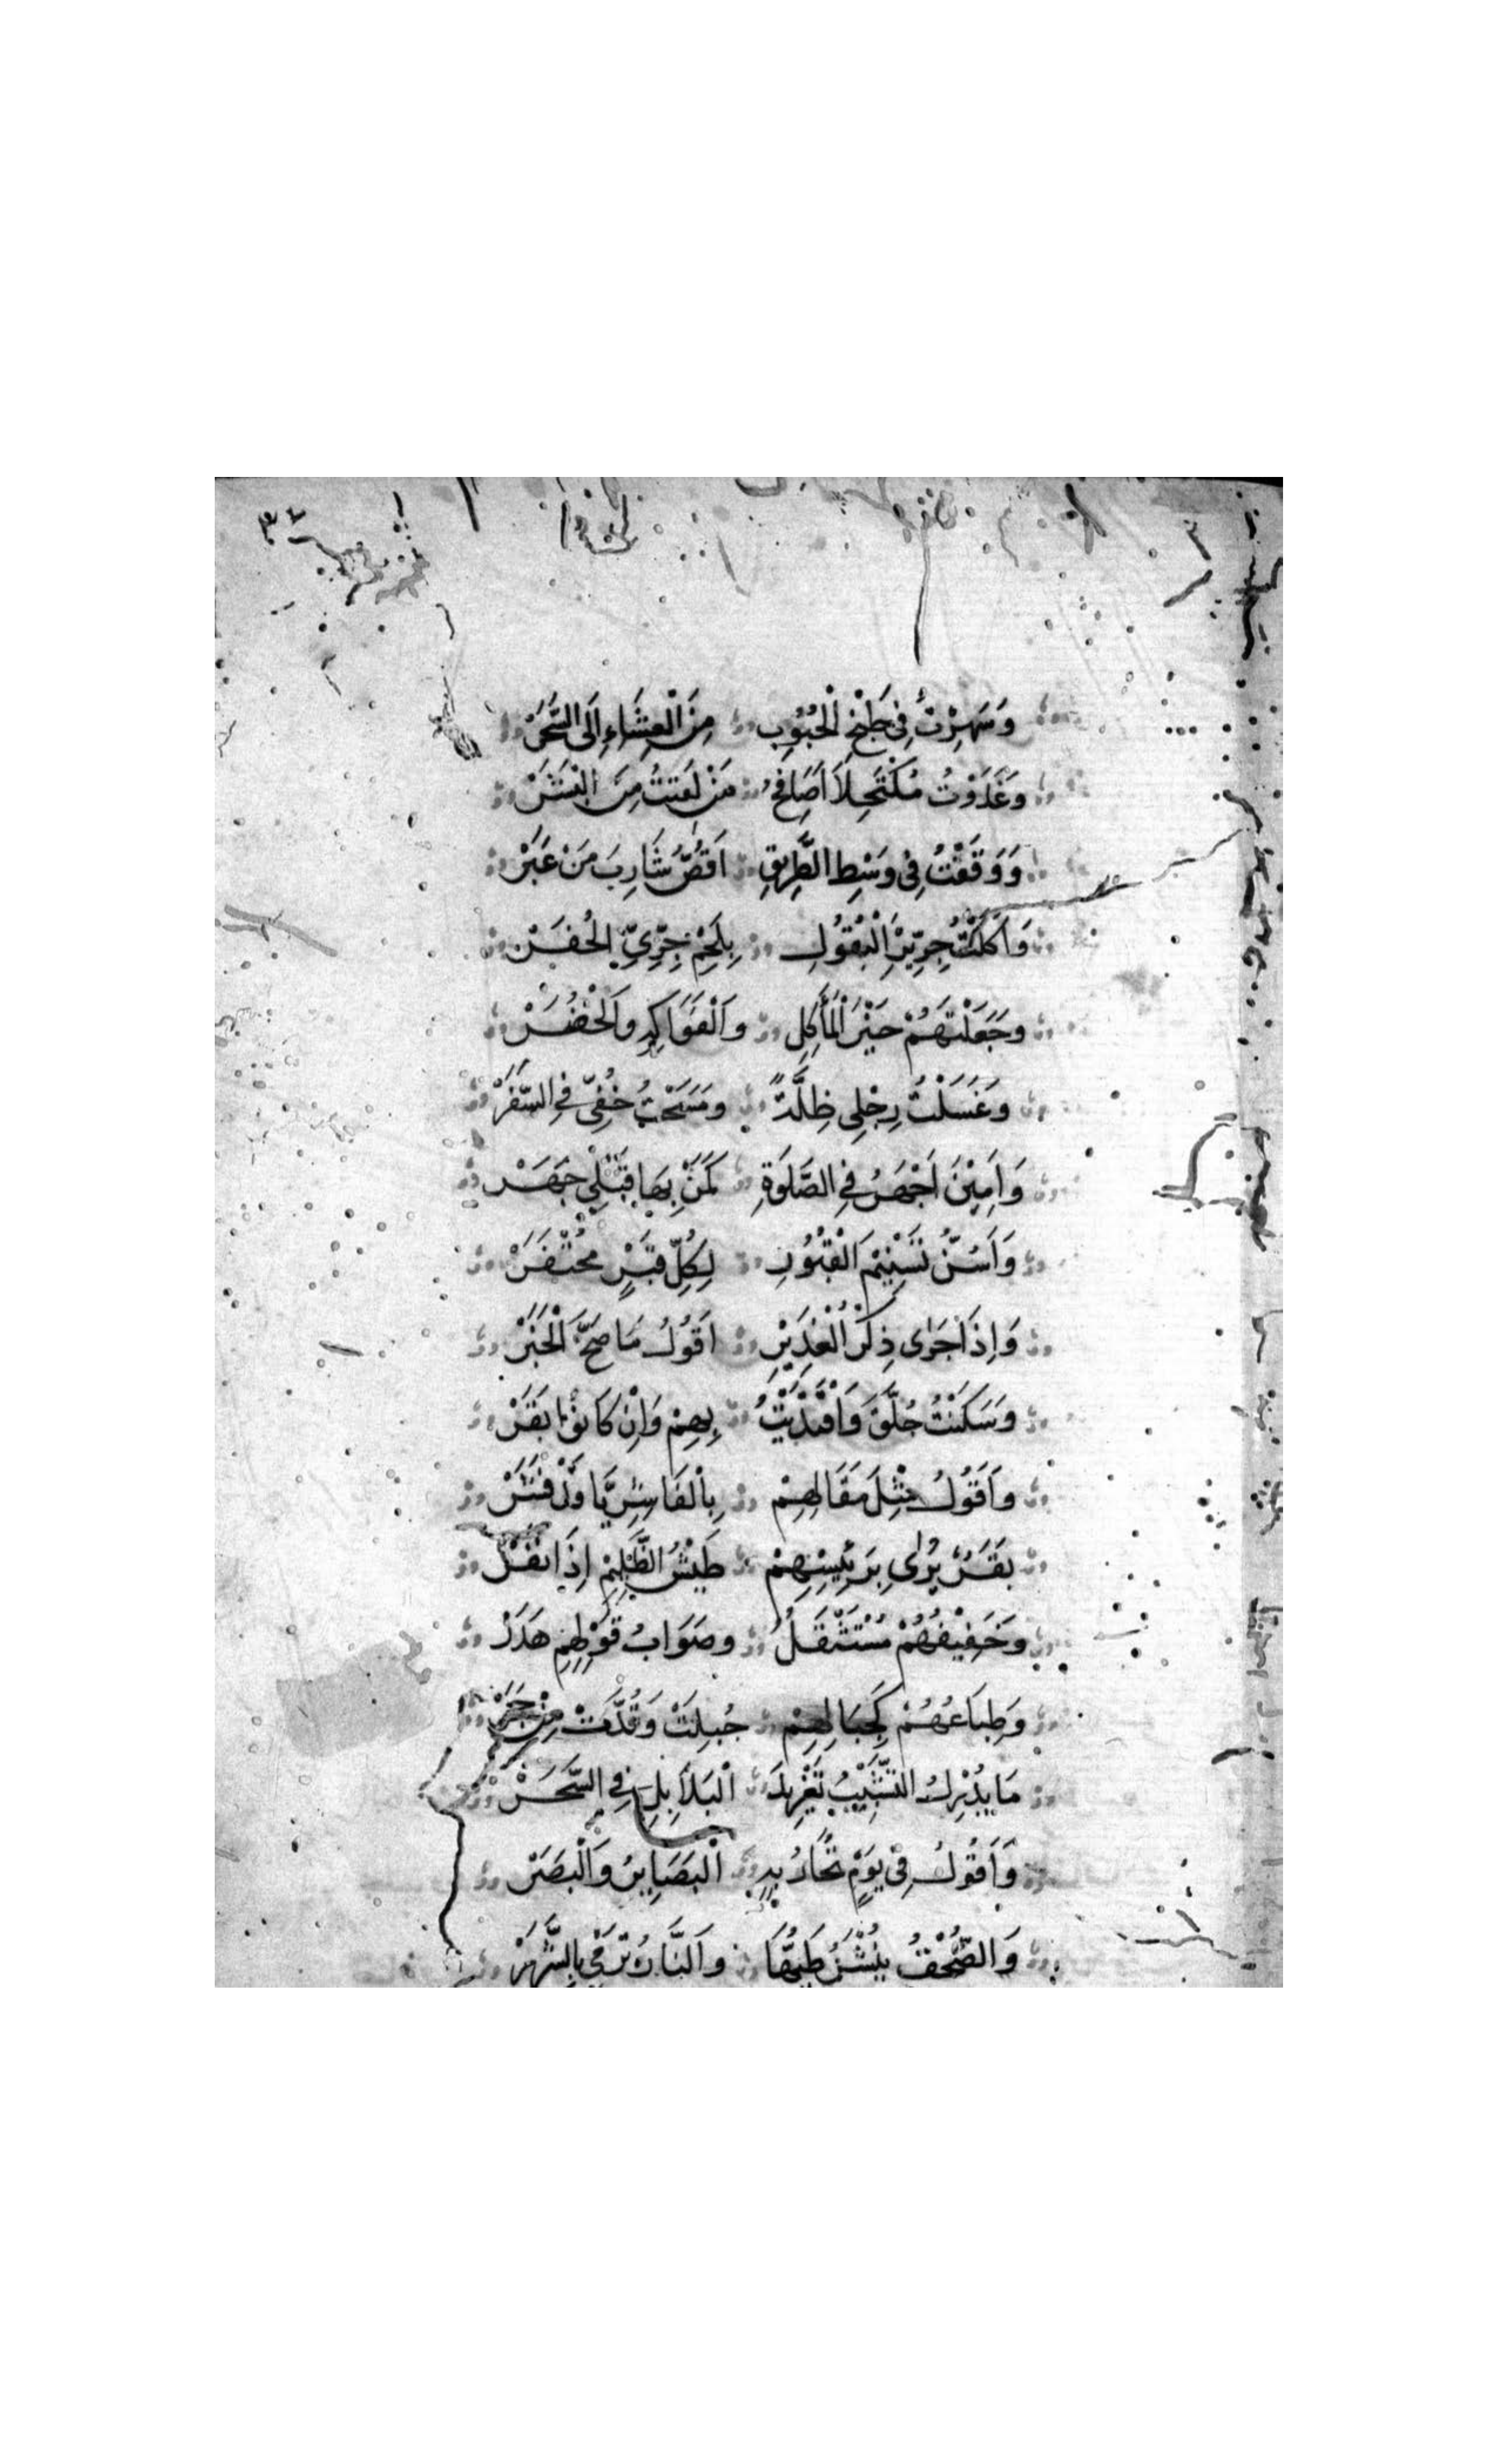 وَسَهِرْتُ فِى طَبْخِ الْحُبُوبِ مِنَ الْعِشَاءِ اِلَى السَّحَرْ
وَغَدَوْتُ مُكْتَحِلاً اُصَافِحُ مَنْ لَقِيتُ مِنَ الْبَشَرْ
وَوَقَفْتُ فِى وَسْطِ الطَّرِيقِ اَقُصُّ شَارِبَ مَنْ عَبَرْ
وَاَكَلْتُ جِرْجِيْرَ الْبُقُولِ بِلَحْمِ جِرِّيِّ الْحُفَرْ
وَجَعَلْتَهُمْ خَيْرَ الْمَأْكِلِ وَالْفَوَاكِهِ وَالْخُضَرْ
وَغَسَلْتُ رِجْلِى ظِلَّةً وَمَسَحْتُ خُفِّيْ فِي السَّفَرْ
وَاَمِيْنَ اَجْهَرُ فِي الصَّلَوةِ كَمَنْ بِهَا قَبْلِيْ جَهَرْ
وَاَسُنُّ تَسْنِيْمَ الْقُبُوْرِ لِكُلِّ قَبْرٍ مُحْتَفَرْ
وَاِذَا جَرٰى ذِكْرُ الْغَدِيْرِ اَقُوْلُ مَا صَحَّ الْخَبَرْ
وَسَكَنْتُ جُلَّقَ وَاقْتَدَيْتُ بِهِمْ وَاِنْ كَانُوْا بَقَرْ
وَاَقُوْلُ مِثْلَ مَقَالِهِمْ بِالْفَاشِرِيَّا وَلْ فَشَرْ
بَقَرٌ يُرٰى بِرَئِيْسِهِمْ طَيْشُ الظَّلِيْمِ اِذَا نَفَرْ
وَخَفِيْفُهُمْ مُسْتَثْقَلُ وَصَوَابُ قَوْلِهِمْ هَدَرْ
وَطِبَاعُهُمْ كَجِبَالِهِمْ جُبِلَتْ وَقُدَّتْ مِنْ حَجَرْ
مَا يُدْرِكُ التَّشْبِيْبُ تَغْرِيْدَ الْبَلاَبِلِ فِي السَّحَرْ
وَاَقُوْلُ فِىْ يَوْمٍ تُحَارُ بِهِ الْبَصَايِرُ وَالْبَصَرْ
وَالصُّحْفُ يُنْشَرُ طَيُّهَا وَالنَّارُ تَرْمِيْ بِالشَّرَرْ